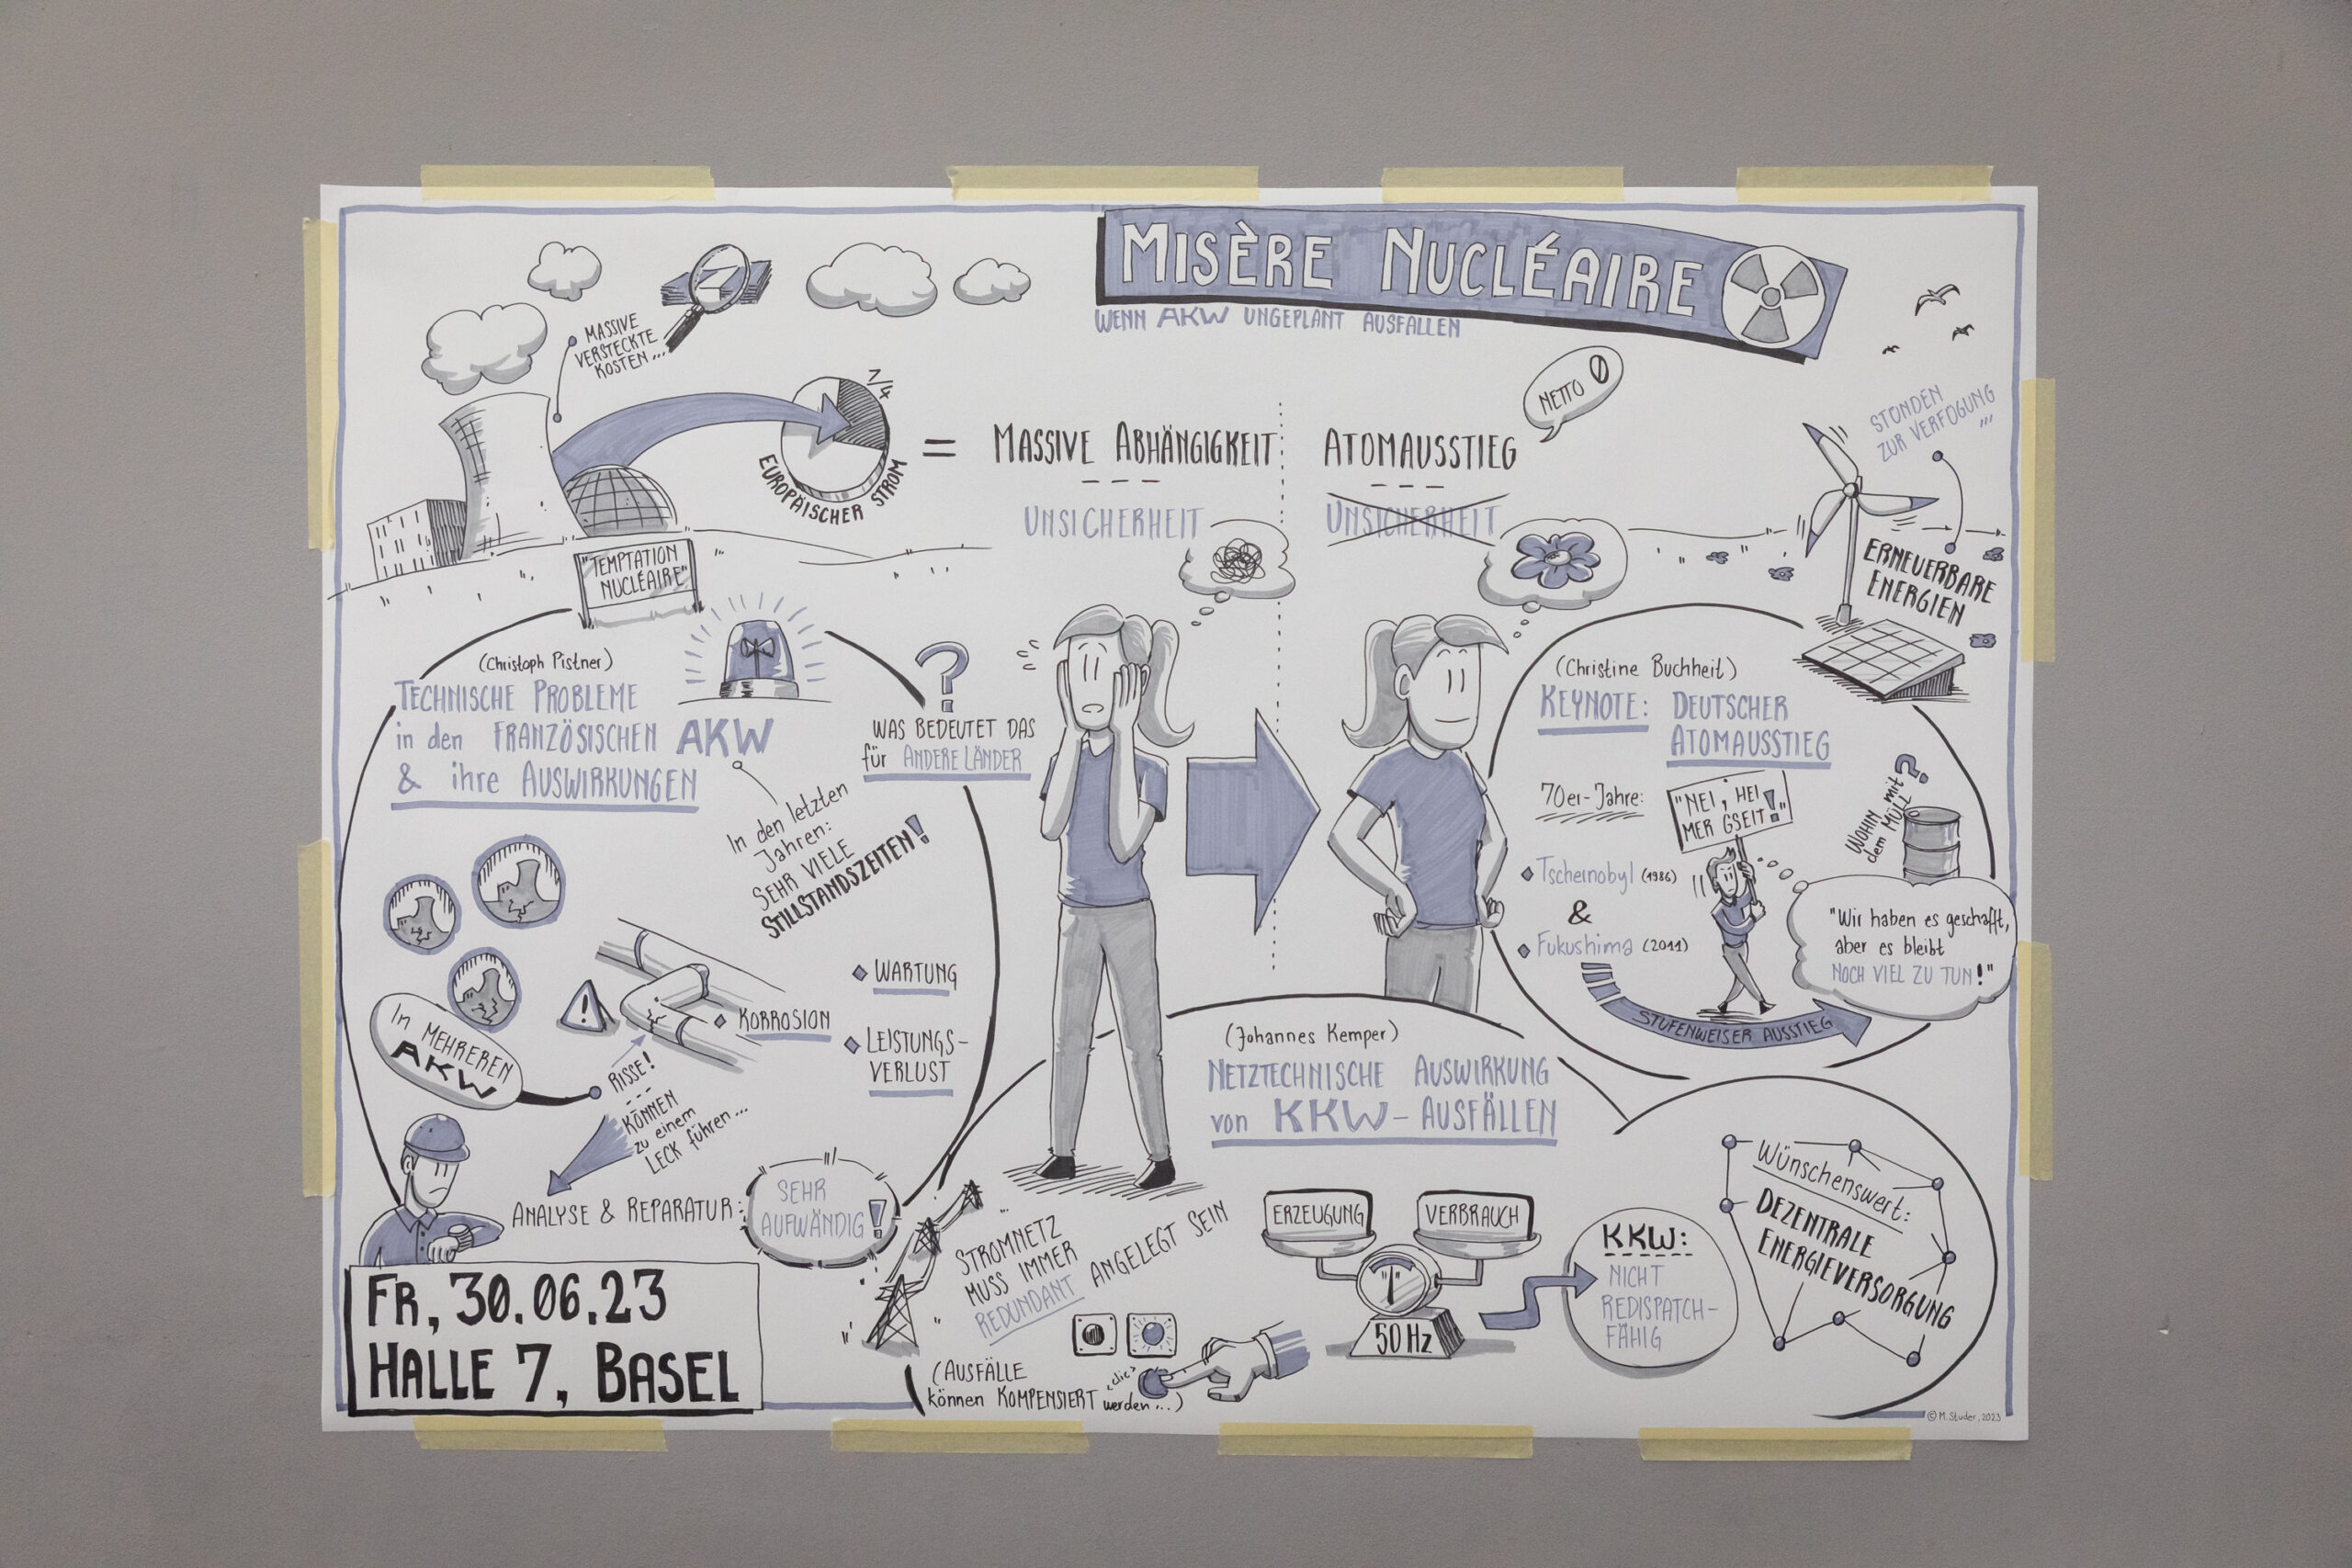 MISÈRE NUCLÉAIRE
WENN AKW UNGEPLANT AUSFALLEN
MASSIVE
VERSTECKTE
KOSTEN...
1/4
EUROPÄISCHER STROM
"TEMPTATION
NUCLÉAIRE"
= MASSIVE ABHÄNGIGKEIT
UNSICHERHEIT
ATOMAUSSTIEG
UNSICHERHEIT
NETTO 0
STÜNDEN
ZUR VERFÜGUNG
...
ERNEUERBARE
ENERGIEN
(Christoph Pistner)
TECHNISCHE PROBLEME
in den FRANZÖSISCHEN AKW
& ihre AUSWIRKUNGEN
?
WAS BEDEUTET DAS
für ANDERE LÄNDER
In den letzten
Jahren:
SEHR VIELE
STILLSTANDSZEITEN!
WARTUNG
LEISTUNGS-
VERLUST
!
KORROSION
In MEHREREN
AKW
RISSE!
KÖNNEN
zu einem
LECK führen...
ANALYSE & REPARATUR:
SEHR
AUFWÄNDIG!
FR, 30.06.23
HALLE 7, BASEL
(Christine Buchheit)
KEYNOTE: DEUTSCHER
ATOMAUSSTIEG
70er-Jahre:
"NEI, HEI
MER GSEIT!"
WOHIN mit
dem MÜLL?
Tschernobyl (1986)
&
Fukushima (2011)
"Wir haben es geschafft,
aber es bleibt
NOCH VIEL ZU TUN!"
STUFENWEISER AUSSTIEG
(Johannes Kemper)
NETZTECHNISCHE AUSWIRKUNG
von KKW-AUSFÄLLEN
STROMNETZ
MUSS IMMER
REDUNDANT ANGELEGT SEIN
(AUSFÄLLE
können KOMPENSIERT werden...)
"clic"
ERZEUGUNG
VERBRAUCH
50 Hz
KKW:
NICHT
REDISPATCH-
FÄHIG
Wünschenswert:
DEZENTRALE
ENERGIEVERSORGUNG
© M. Studer, 2023